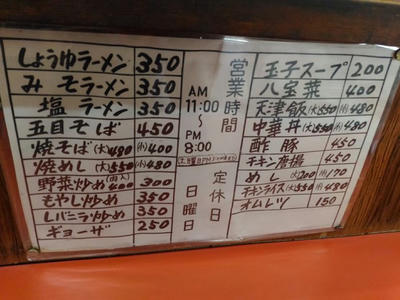 しょうゆラーメン 350
みそラーメン 350
塩ラーメン 350
五目そば 450
焼そば(大)480(小)400
焼めし(大)550(小)480
野菜炒め(肉入)400 300
もやし炒め 350
レバニラ炒め 350
ギョーザ 250
営業時間
AM
11:00
~
PM
8:00
定休日
日曜日
玉子スープ 200
八宝菜 400
天津飯(大)550(小)480
中華丼(大)550(小)480
酢豚 450
チキン唐揚 450
めし(大)200(小)170
チキンライス(大)550(小)480
オムレツ 150